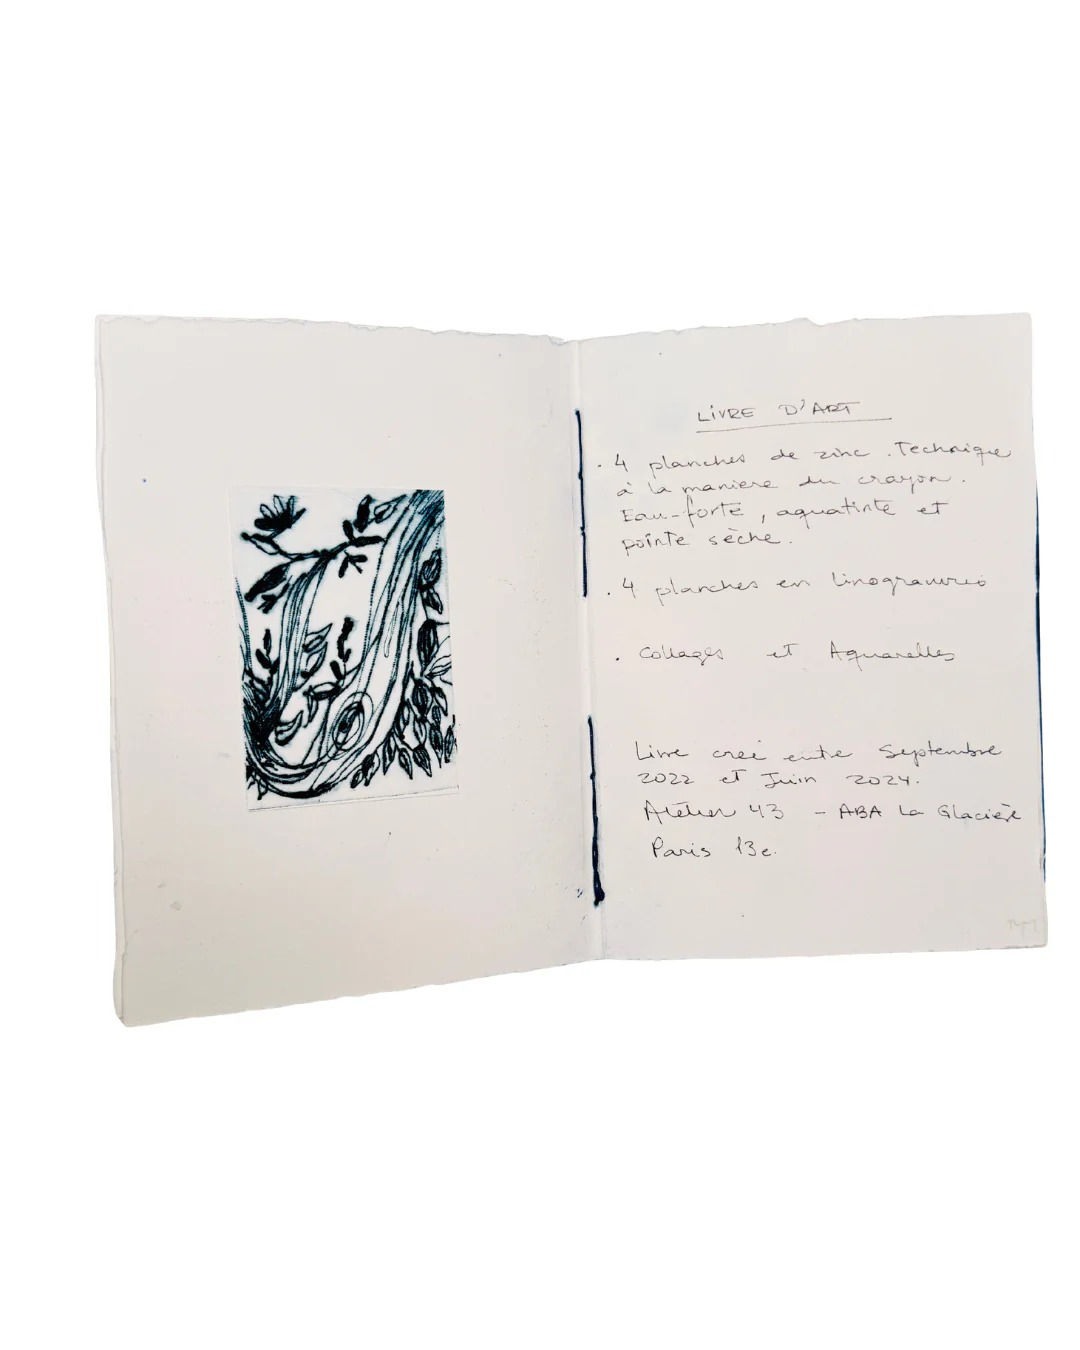 LiVRE D'ART
. 4 planches de zinc. Technique
à la maniere du crayon.
Eau-forte, aquatinte et
pointe sèche.
. 4 planches en linogravures
. Collages et Aquarelles
Livre creé entre Septembre
2022 et Juin 2024.
Atelier 43 - ABA La Glacière
Paris 13e.